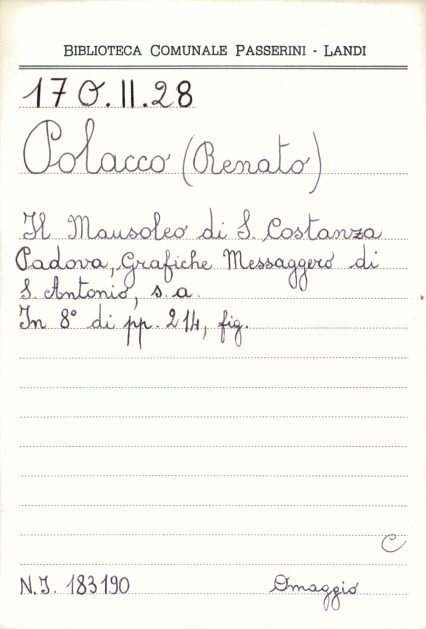 BIBLIOTECA COMUNALE PASSERINI - LANDI
170.II.28
Polacco (Renato)
Il Mausoleo di S. Costanza
Padova, Grafiche Messaggero di
S. Antonio, s.a.
In 8° di pp. 214, fig.
C
N.I. 183190 Omaggio